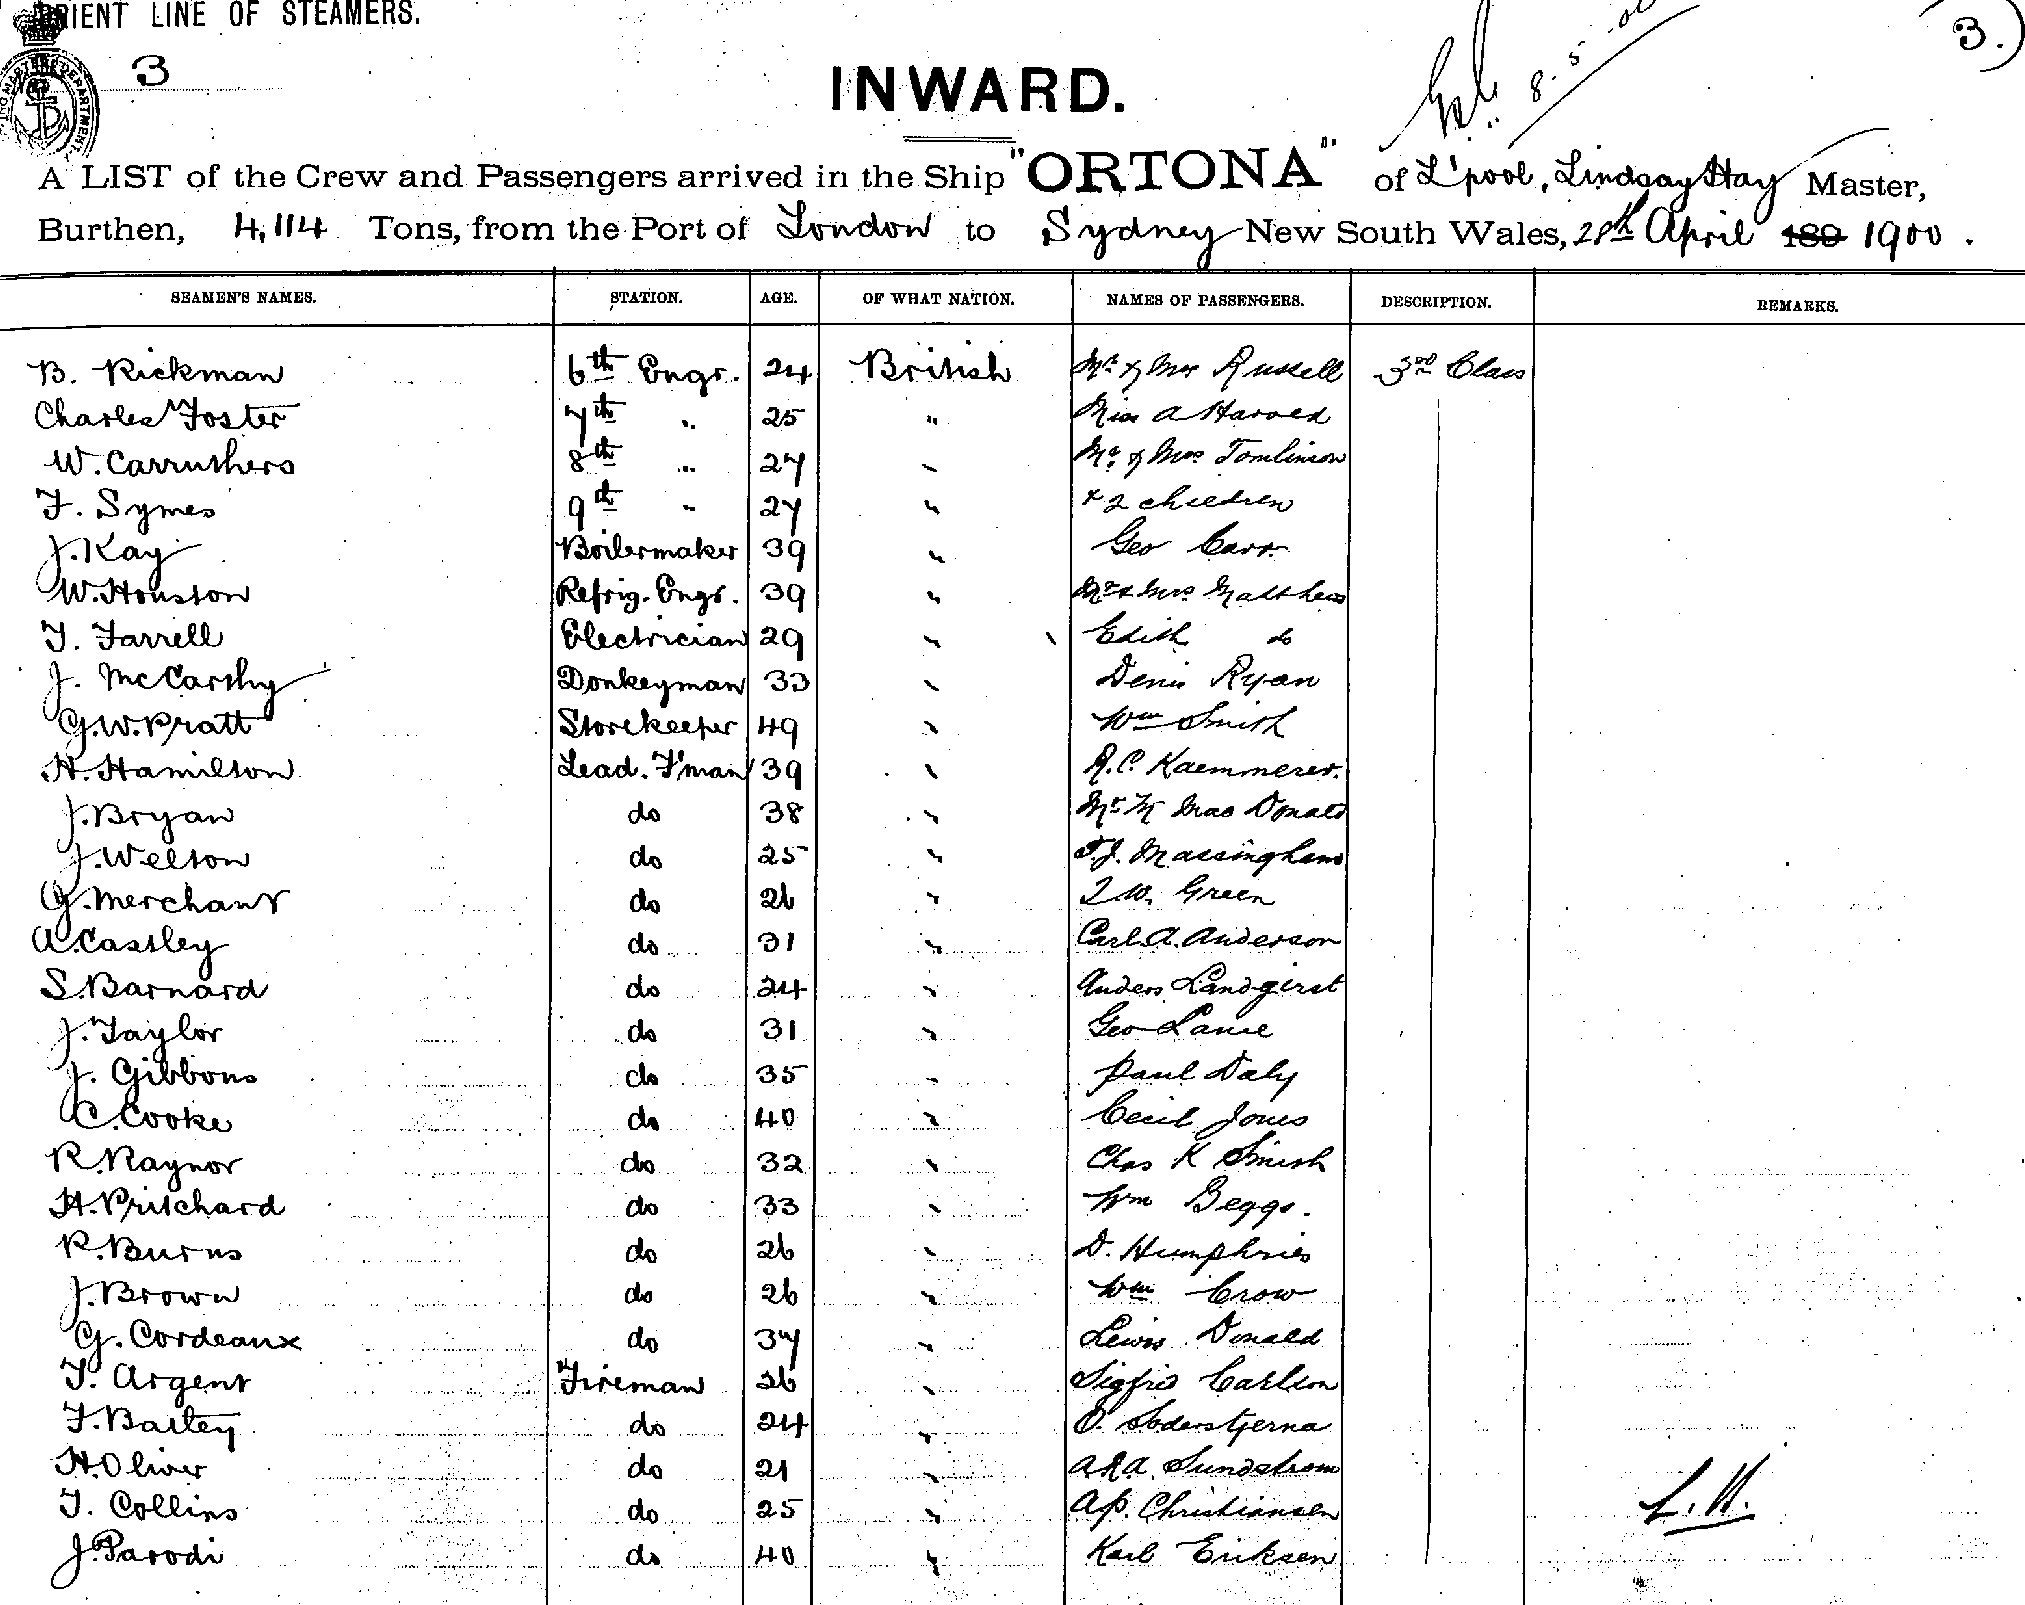 ORIENT LINE OF STEAMERS.
3
3.
8-5-00
INWARD.
A LIST of the Crew and Passengers arrived in the Ship "ORTONA" of L'pool, Lindsay Hay Master,
Burthen, 4,114 Tons, from the Port of London to Sydney New South Wales, 28th April 189 1900.
SEAMEN'S NAMES. STATION. AGE. OF WHAT NATION. NAMES OF PASSENGERS. DESCRIPTION. REMARKS.
B. Rickman 6th Engr. 24 British Mr & Mrs Russell 3rd Class
Charles Foster 7th " 25 " Miss A Harold
W. Carruthers 8th " 27 " Mr & Mrs Tomlinson
F. Symes 9th " 27 " + 2 children
J. Kay Boilermaker 39 " Geo Carr.
W. Houston Refrig. Engr. 39 " Mr & Mrs Matthews
T. Farrell Electrician 29 " Edith do
J. McCarthy Donkeyman 33 " Denis Ryan
G.W. Pratt Storekeeper 49 " Wm Smith
H. Hamilton Lead. F'man 39 " A.C. Kaemmerer.
J. Bryan do 38 " Mr M Mac Donald
J. Welton do 25 " T.J. Massingham
G. Merchant do 26 " W. Green
A. Castley do 31 " Carl A. Anderson
S. Barnard do 24 " Anders Landgirst
J. Taylor do 31 " Geo
J. Gibbons do 35 " Paul Daly
C. Cooke do 40 " Cecil Jones
R. Raynor do 32 " Chas K Smith
H. Pritchard do 33 " Wm Beggs.
R. Burns do 26 " D. Humphries
J. Brown do 26 " Wm Crow
G. Cordeaux do 37 " Lewis Donald
T. Argent Fireman 26 " Sigfrid Carlson
F. Bailey do 24 " O. Soderstjerna
H. Oliver do 21 " A.R.A. Sundstrom
T. Collins do 25 " A.P. Christiansen
J. Parodi do 40 " Karl Eriksen
L.H.